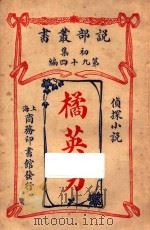 説部叢書
初集
第九十四編
偵探小説
橘英男
上海
商務印書館發行